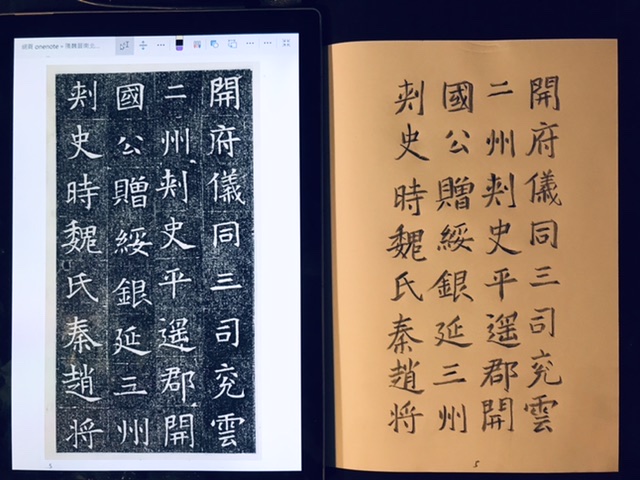 onenote
開府儀同三司兖雲
二州刾史平遥郡開
國公贈綏銀延三州
刾史時魏氏秦趙将
5
開府儀同三司兖雲
二州刾史平遥郡開
國公贈綏銀延三州
刾史時魏氏秦趙将
5